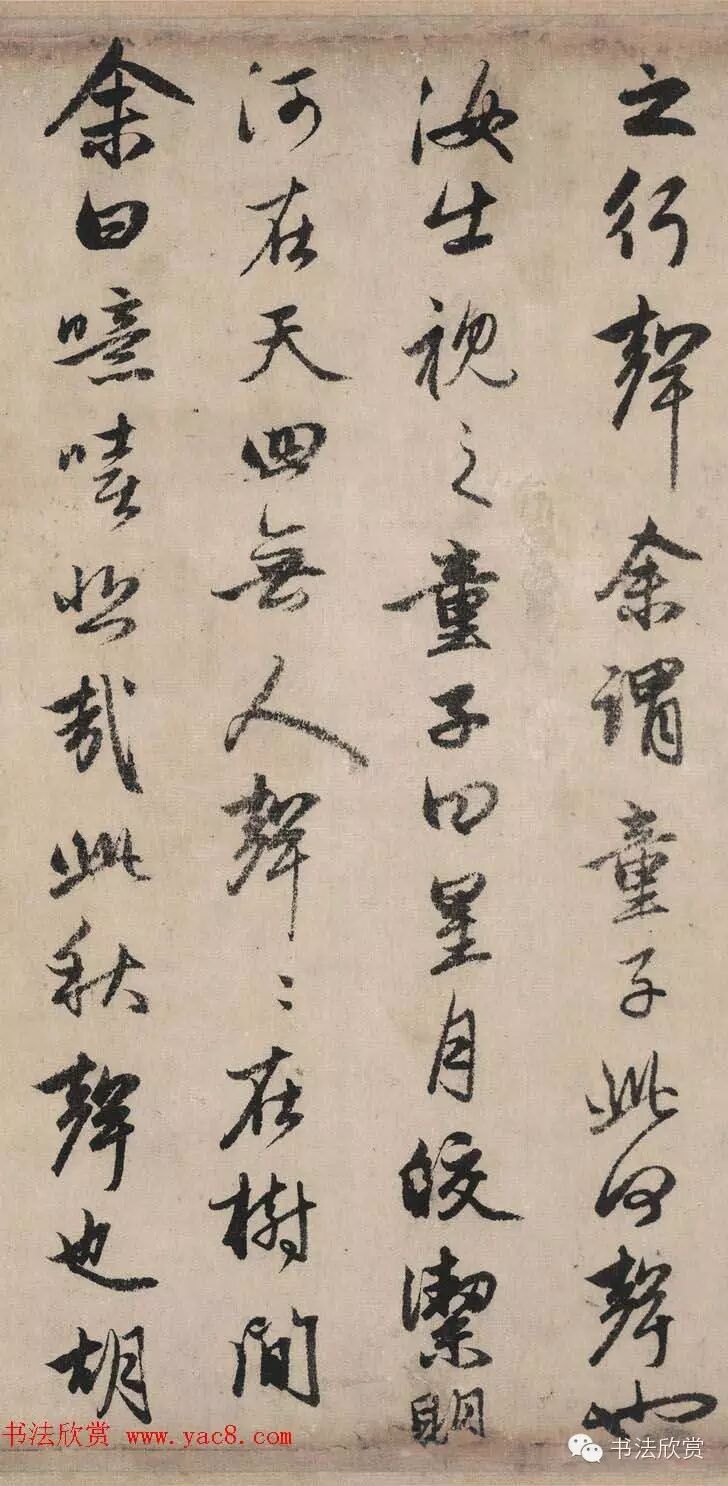 之行聲余謂童子此何聲也
汝出視之童子曰星月皎潔明
河在天四無人聲〻在樹間
余曰噫嘻悲哉此秋聲也胡
书法欣赏 www.yac8.com
书法欣赏